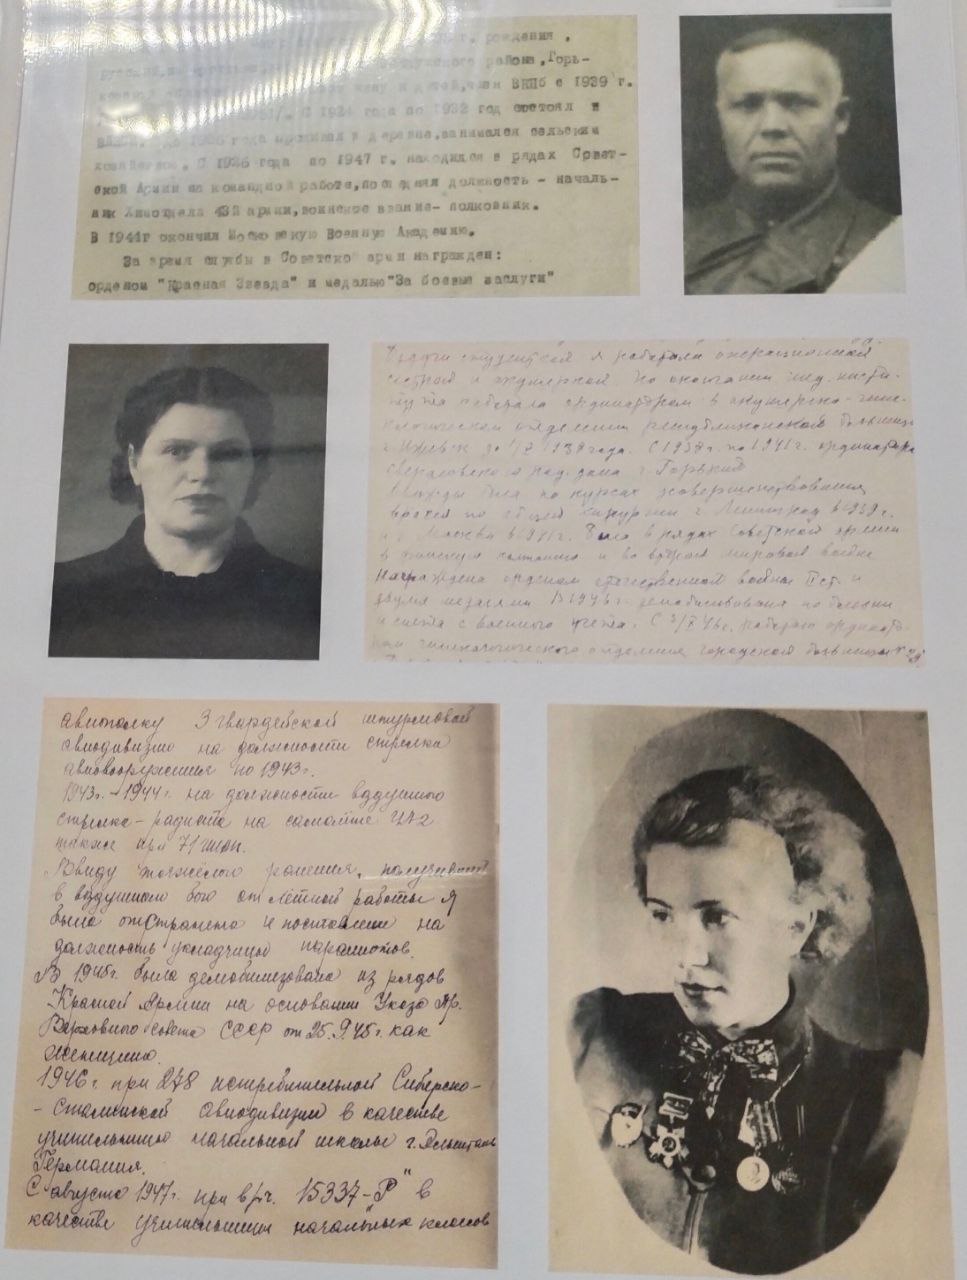 рождения.
района, Горь-
жену и детей, член ВКПб с 1939 г.
С 1924 года по 1932 год состоял в
года проживал в деревне, занимался сельским
хозяйством. С 1926 года по 1947 г. находился в рядах Совет-
ской Армии на командной работе, последняя должность - началь-
ник Химотдела армии, воинское звание- полковник.
В 1944г окончил Московскую Военную Академию.
За время службы в Советской армии награжден:
орденом "Красная Звезда" и медалью "За боевые заслуги"
студенткой я работала операционной
сестрой и акушеркой. По окончании мед. инсти-
тута работала ординатором в акушерско-гине-
кологическом отделении республиканской больницы
г. Ижевск до 1938 года. С 1938г. по 1941г. ординатора
Свердловского род. дома г. Горький
Дважды была на курсах усовершенствования
врачей по общей хирургии г. Ленинград в 1939г.
и г. Москва в 1941г. Была в рядах Советской армии
в финскую кампанию и во второй мировой войне
Награждена орденом отечественной войны II ст. и
двумя медалями В 1946г. демобилизована по болезни
и снята с военного учета. С 46г. работаю ордина-
гинекологического отделения городской больницы №
авиаполку 3 гвардейской штурмовой
авиадивизии на должности стрелка
авиавооружения по 1943г.
1943г. - 1944г. на должности воздушного
стрелка-радиста на самолёте
также при 71
Ввиду тяжёлого ранения, полученного
в воздушном бою от лётной работы я
была отстранена и поставлена на
должность укладчицы парашютов.
В 1945г. была демобилизована из рядов
Красной Армии на основании Указа Пр.
Верховного Совета СССР от 25.9.45г. как
женщина.
1946г. при 278 истребительной Сибирско-
-Сталинской авиадивизии в качестве
учительницы начальной школы г.
Германия.
С августа 1947г. при в/ч. 15337-"Р" в
качестве учительницы начальных классов